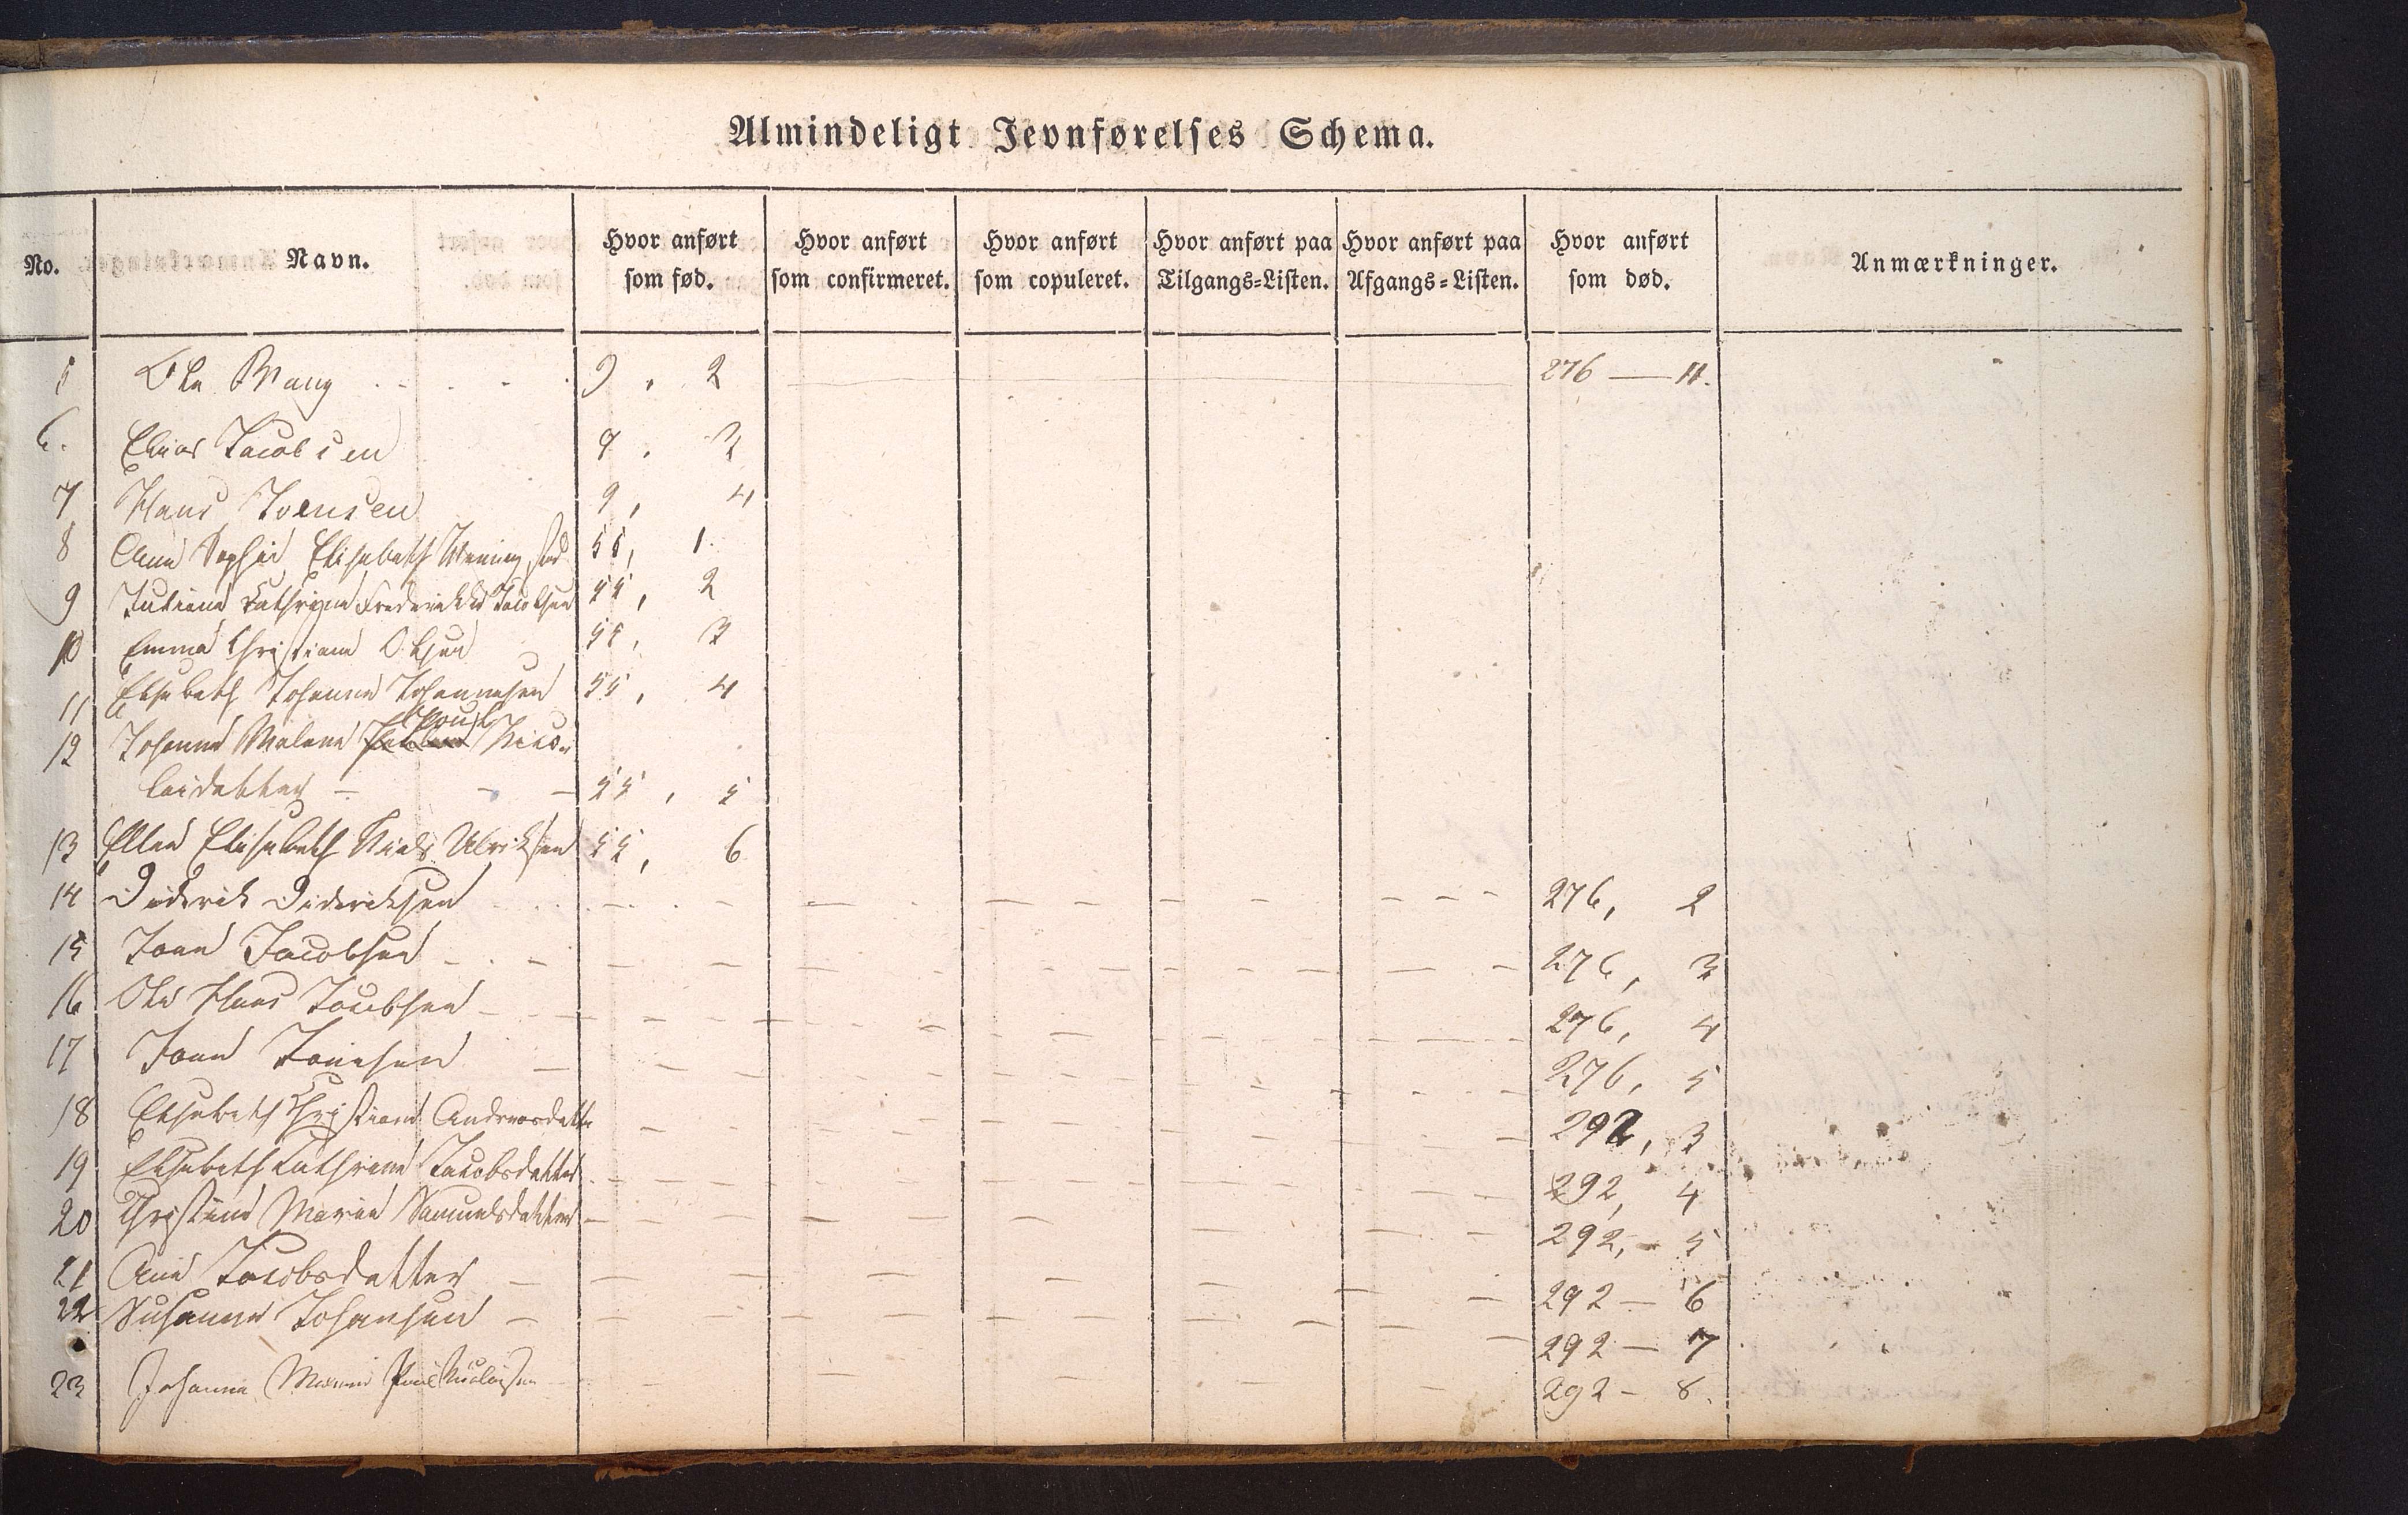 Almindeligt Jevnførelses Schema.
No. Navn. Hvor anført som fød. Hvor anført som confirmeret. Hvor anført som copuleret. Hvor anført paa Tilgangs-Listen. Hvor anført paa Afgangs-Listen. Hvor anført som død. Anmærkninger.
5 Ole 9, 2 276 — 11.
6. Elias Jacobsen 9, 3
7 Hans Joensen 9, 4
8 Anne Sophie Elisabeth 55, 1
9 Juliane Cathrine Frederikke Jacobsen 55, 2
10 Emma Christiane Olsen 55, 3
11 Elsebeth Johanne Johannesen 55, 4
12 Johanne Malene Poul Nico-
laidatter — - — 55, 5
13 Ellen Elisabeth Niels Ulriksen 55, 6
14 Diderik Dideriksen 276, 2
15 Joen Jacobsen 276, 3
16 Ole Hans Jacobsen 276, 4
17 Joen Joensen 276, 5
18 Elsebeth Christiane Andreasdatter 292, 3
19 Elsebeth Cathrine Jacobsdatter 292, 4
20 Christine Marie Samuelsdatter 292, - 5
21 Anne Jacobsdatter 292 — 6
22 Susanne Johansen 292 — 7
23 Johanne Poul Nicolaisen 292 - 8.